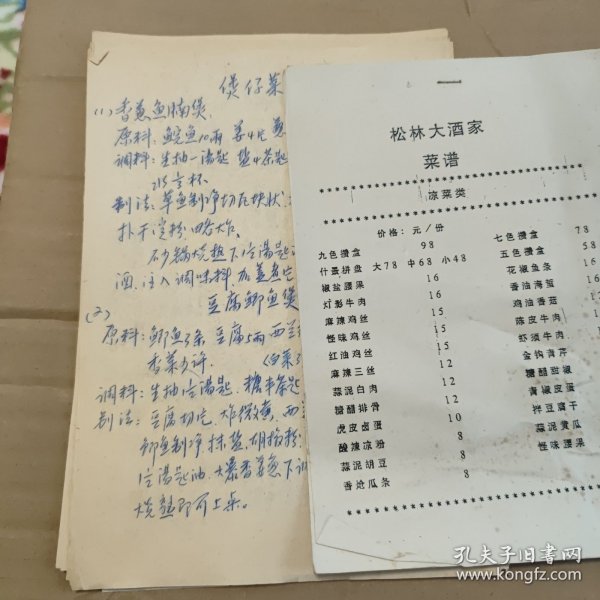 煲仔菜
(1) 香葱鱼腩煲.
原料: 鲩鱼10两 姜4片 葱
调料: 生抽一汤匙 盐4茶匙
杯
制法: 草鱼制净切瓦块状.
扑干淀粉略炸.
砂锅烧热下 汤匙
酒.注入调味料.加盖煮
豆腐鲫鱼煲
(2)
原料: 鲫鱼3条 豆腐5两 西兰
香菜少许. (白菜
调料: 生抽 汤匙. 糖半茶匙
制法: 豆腐切 . 炸微黄. 西
鲫鱼制净.抹盐.胡椒粉
汤匙油.大爆香姜葱下调
烧 即可上桌。
松林大酒家
菜谱
凉菜类
价格: 元/份
九色攒盒 98 七色攒盒 78
什蛋拼盘 大78 中68 小48 五色攒盒 58
椒盐腰果 16 花椒鱼条 16
灯影牛肉 16 香油海蜇 16
麻辣鸡丝 15 鸡油香菇 12
怪味鸡丝 15 陈皮牛肉
红油鸡丝 15 虾须牛肉
麻辣三丝 12 金钩青芹
蒜泥白肉 12 糖醋甜椒
糖醋排骨 12 青椒皮蛋
虎皮卤蛋 10 拌豆腐干
酸辣凉粉 8 蒜泥黄瓜
蒜泥胡豆 8 怪味腰果
香炝瓜条 8
孔夫子旧书网
www.kongfz.com